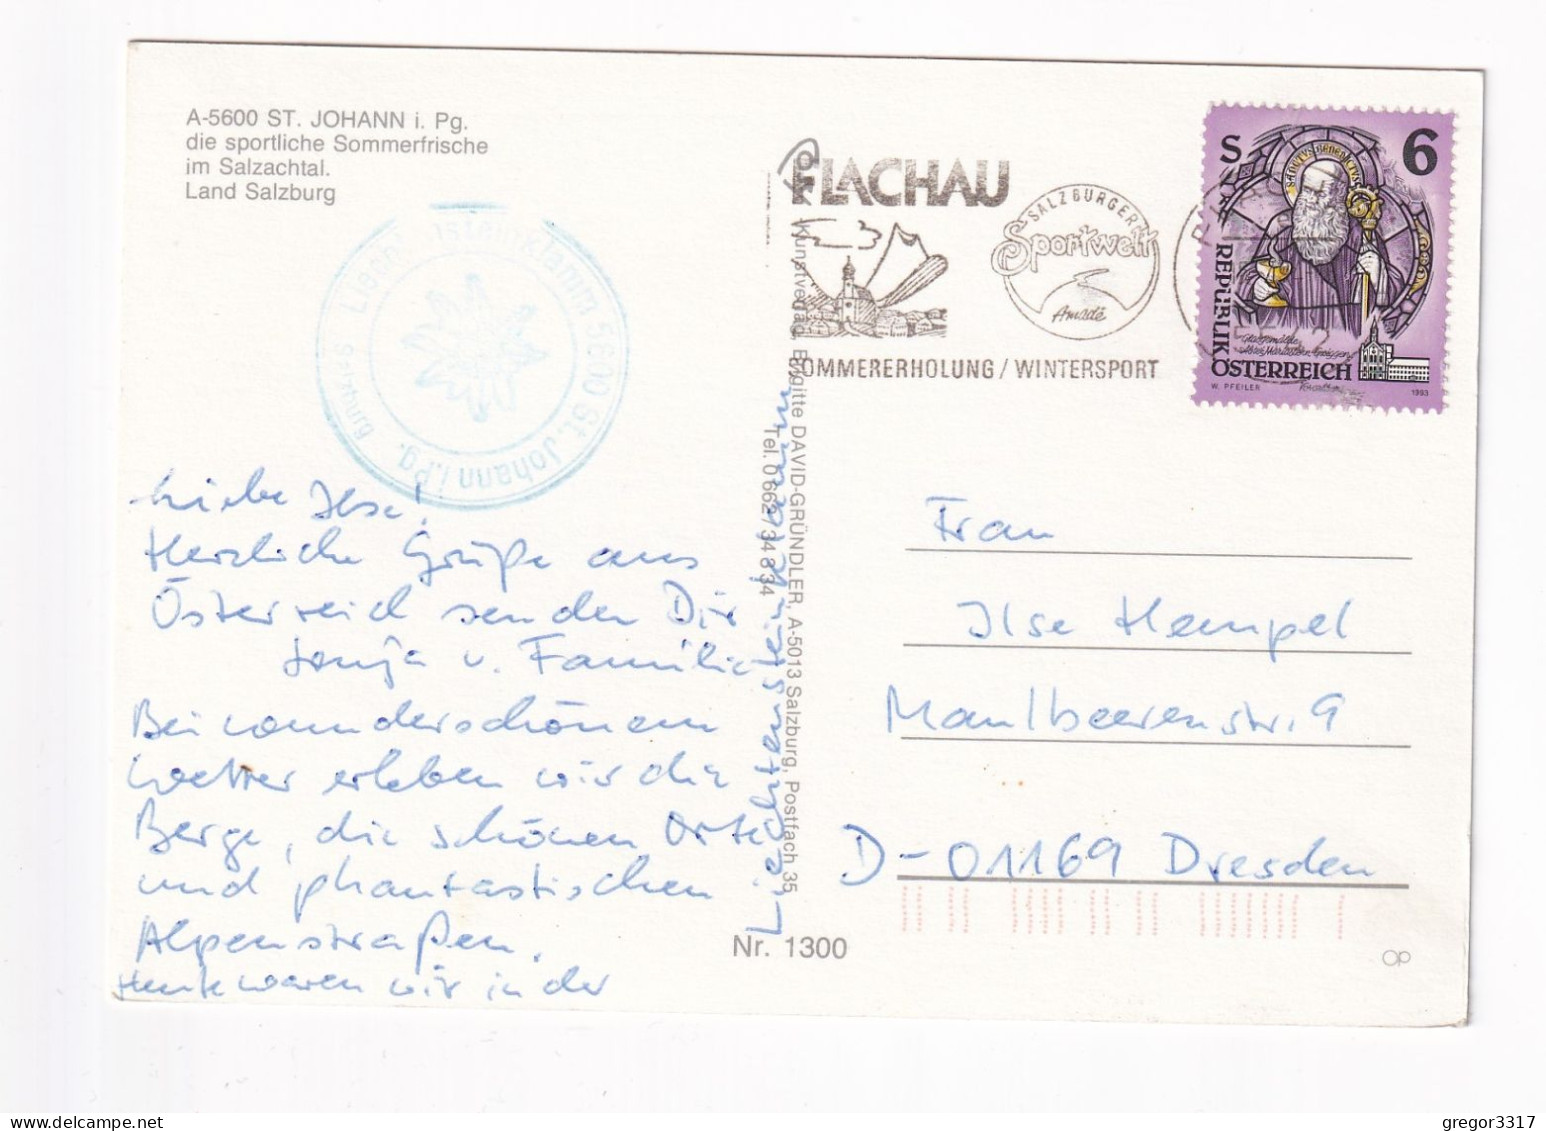 A-5600 ST. JOHANN i. Pg.
die sportliche Sommerfrische
im Salzachtal.
Land Salzburg
Liechtensteinklamm 5600 St. Johann i. Pg.
Salzburg
Liebe Ilse!
Herzliche Grüße aus
Österreich senden Dir
Sonja u. Familie
Bei wunderschönem
Wetter erleben wir die
Berge, die schönen Orte
und phantastischen
Alpenstraßen.
Heute waren wir in der
Liechtensteinklamm
Kunstverlag Brigitte DAVID-GRÜNDLER, A-5013 Salzburg, Postfach 35
Tel. 0 662 / 34 8 34
Nr. 1300
FLACHAU
SALZBURGER
Sportwelt
Amadé
SOMMERERHOLUNG / WINTERSPORT
S 6
SANCTVS BENEDICTVS
REPUBLIK
ÖSTERREICH
W. PFEILER
1993
Frau
Ilse Hempel
Maulbeerenstr. 9
D-01169 Dresden
OP
gregor3317